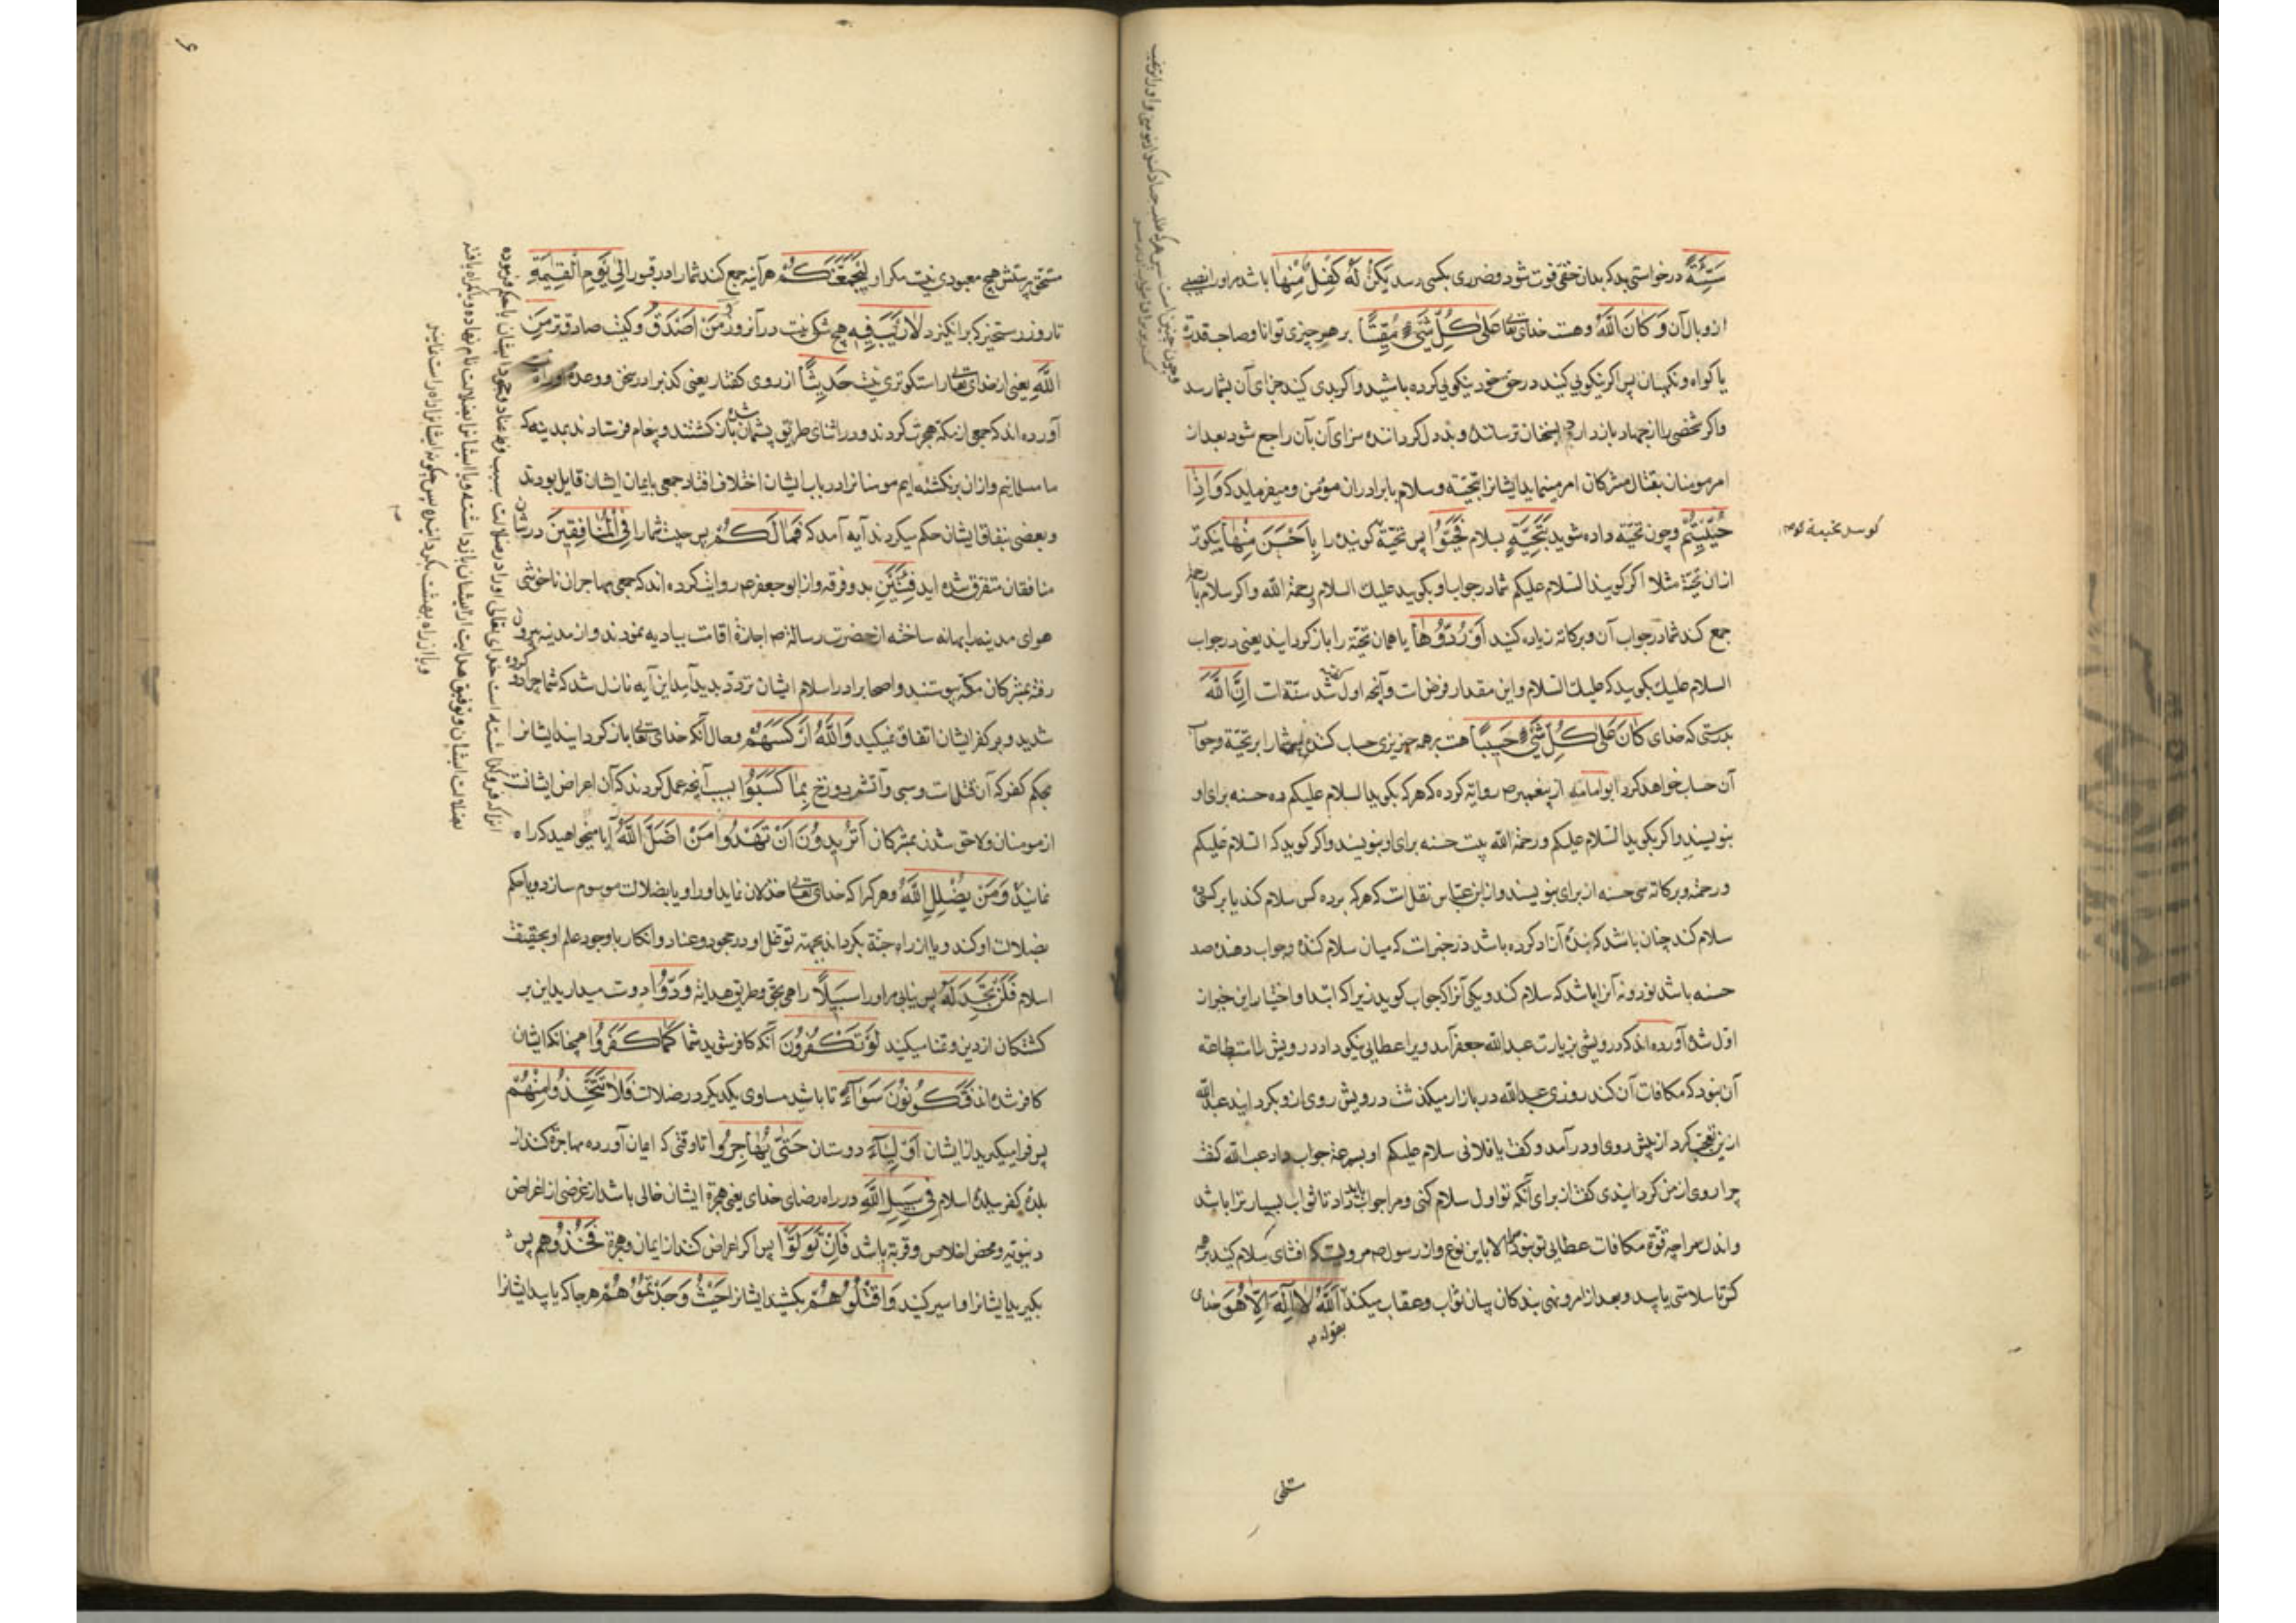 سَيِّئَةً درخواستی بد که بدان حقی فوت شود و ضرری بکسی رسد یَکُنْ لَهُ کِفْلٌ مِنْها باشد مر او را نصیبی
از وبال آن وَ کانَ اللّٰهُ وهست خدای تعا عَلیٰ کُلِّ شَیْءٍ مُقِیتًا بر هر چیزی توانا و صاحب قدرة
یا کواه و نکهبان پس اکر نیکویی کنید در حق خود نیکویی کرده باشید و اکر بدی کنید جزای آن بشما رسد
و اکر شخصی را از جهاد بازدارد بسخنان ترساننده و بد دل کرداننده سزای آن بآن راجع شود بعد از
امر مومنان بقتال مشرکان امر مینماید ایشانرا بتحیّة و سلام با برادران مؤمن و میفرماید که وَ اِذا
حُیِّیتُمْ و چون تحیّة داده شوید بِتَحِیَّةٍ بسلام فَحَیُّوا پس تحیّة کوینده را بِاَحْسَنَ مِنْها نیکوتر
از ان تحیّة مثلا اکر کویند السلام علیکم شما در جواب او بکویید علیک السلام و رحمة اللّٰه و اکر سلام با رحمة
جمع کند شما در جواب آن و برکاته زیاده کنید اَوْ رُدُّوها یا همان تحیّة را باز کردانید یعنی در جواب
السلام علیک بکویید که علیک السلام و این مقدار فرض است و آنچه اول کفته شد سنّة است اِنَّ اللّٰهَ
بدرستی که خدای کانَ عَلیٰ کُلِّ شَیْءٍ حَسِیبًا هست بر همه چیزی حساب کننده پس شما را بر تحیّة و جواب
آن حساب خواهد کرد ابوامامه از پیغمبر ص روایة کرده که هر که بکوید السلام علیکم ده حسنه برای او
بنویسند و اکر بکوید السلام علیکم و رحمة اللّٰه بیست حسنه برای او بنویسند و اکر کوید که السلام علیکم
و رحمة و برکاته سی حسنه از برای بنویسند و از ابن عبّاس نقلست که هر که بر ده کس سلام کند یا بر کسی
سلام کند چنان باشد که بندهٔ آزاد کرده باشد در خبرست که میان سلام کننده و جواب دهنده صد
حسنه باشد نود و نه آنرا باشد که سلام کند و یکی آنرا که جواب کوید زیرا که ابتدا و اختیار این خیر از
اوّل شد آورده اند که درویشی بزیارت عبد اللّٰه جعفر آمد ویرا عطایی نیکو داد درویش را استطاعة
آن نبود که مکافات آن کند روزی عبد اللّٰه در بازار میکذشت درویش روی از و بکردانید عبد اللّٰه
ازین تعجب کرد از پیش روی او در آمد و کفت یا فلانی سلام علیکم او بسرعة جواب داد عبد اللّٰه کفت
چرا روی از من کردانیدی کفت از برای آنکه تو اول سلام کنی و مرا جواب باید داد تا ثواب بسیار ترا باشد
و مرا چه قوّة مکافات عطایی تو نبود الا باین نوع و از رسول ص مرویست که افشای سلام کنید بر هم
کر تا سلامتی یابید و بعد از امر و نهی بندکان بیان ثواب و عقاب میکند اَللّٰهُ لا اِلٰهَ اِلّا هُوَ خدای
بقوله
مستحق پرستش هیچ معبودی نیست مکر او لَیَجْمَعَنَّکُمْ هر آینه جمع کند شما را در قبور اِلیٰ یَوْمِ الْقِیٰمَةِ
تا روز رستخیز که برانکیزد لا رَیْبَ فِیهِ هیچ شکی نیست در آنروز وَ مَنْ اَصْدَقُ و کیست صادقتر مِنَ
اللّٰهِ یعنی از خدای تعا راستکوتری نیست حَدِیثًا از روی کفتار یعنی کذب را در سخن و وعدهٔ او راه
آورده اند که جمعی از مکّه هجرت کردند و در اثنای طریق پشیمان شده باز کشتند و پیغام فرستادند بمدینه که
ما مسلمانیم و از ان برنکشته ایم مومنانرا در باب ایشان اختلاف افتاد جمعی بایمان ایشان قایل بودند
و بعضی بنفاق ایشان حکم میکردند آیه آمد که فَما لَکُمْ پس چیست شما را فِی الْمُنافِقِینَ در باب
منافقان متفرق شده اید فِئَتَیْنِ بدو فرقه و از ابو جعفر ص روایت کرده اند که جمعی مهاجران ناخوشی
هوای مدینه را بهانه ساخته از حضرت رسالة ص اجازة اقامت ببادیه نمودند و از مدینه بیرون
رفته بمشرکان مکّه پیوستند و اصحابرا در اسلام ایشان تردّد پدید آمد این آیه نازل شد که شما چرا دو فرقه
شدید و بر کفر ایشان اتفاق نمیکنید وَ اللّٰهُ اَرْکَسَهُمْ و حال آنکه خدای تعا باز کردانید ایشانرا
بحکم کفر که آن قتلست و سبی و آتش دوزخ بِما کَسَبُوا بسبب آنچه عمل کردند که آن اعراض ایشانست
از مومنان و لاحق شدن بمشرکان اَتُرِیدُونَ اَنْ تَهْدُوا مَنْ اَضَلَّ اللّٰهُ آیا میخواهید که راه
نمایید وَ مَنْ یُضْلِلِ اللّٰهُ و هر کرا که خدای تعا خذلان نماید او را و یا بضلالت موسوم سازد و یا حکم
بضلالت او کند و یا از راه جنّة بکرداند بجهة توغّل او در جحود و عناد و انکار با وجود علم او بحقیقت
اسلام فَلَنْ تَجِدَ لَهُ پس نیابی مر او را سَبِیلًا راهی بحق و طریق هدایة وَدُّوا دوست میدارید این بر
کشتکان از دین و تمنا میکنید لَوْ تَکْفُرُونَ آنکه کافر شوید شما کَما کَفَرُوا همچنانکه ایشان
کافر شده اند فَتَکُونُونَ سَواءً تا باشید مساوی یکدیکر در ضلالت فَلا تَتَّخِذُوا مِنْهُمْ
پس فرا میکیرید از ایشان اَوْلِیاءَ دوستان حَتّیٰ یُهاجِرُوا تا وقتی که ایمان آورده مهاجرة کنند از
بلدهٔ کفر ببلدهٔ اسلام فِی سَبِیلِ اللّٰهِ در راه رضای خدای یعنی هجرة ایشان خالی باشد از غرضی از اغراض
دنیویّه و محض اخلاص و قربة باشد فَاِنْ تَوَلَّوْا پس اکر اعراض کنند از ایمان و هجرة فَخُذُوهُمْ پس
بکیرید ایشانرا و اسیر کنید وَ اقْتُلُوهُمْ بکشید ایشانرا حَیْثُ وَجَدْتُمُوهُمْ هر جا که یابید ایشانرا